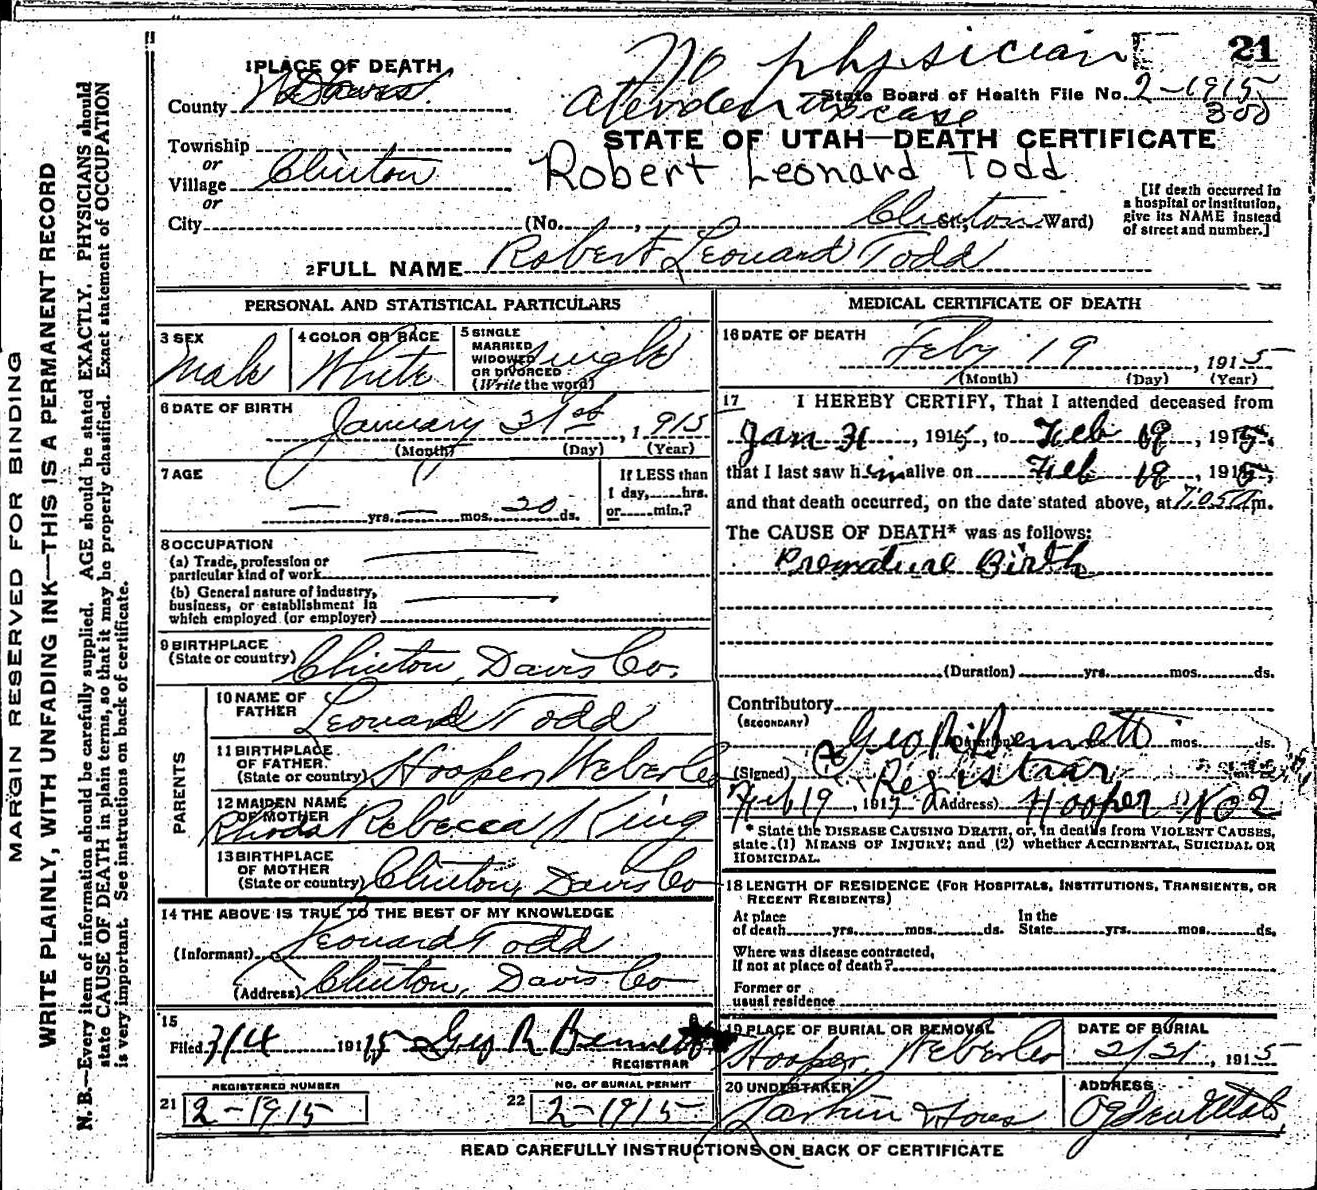 MARGIN RESERVED FOR BINDING
WRITE PLAINLY, WITH UNFADING INK—THIS IS A PERMANENT RECORD
N. B.—Every item of information should be carefully supplied. AGE should be stated EXACTLY. PHYSICIANS should
state CAUSE OF DEATH in plain terms, so that it may be properly classified. Exact statement of OCCUPATION
is very important. See instructions on back of certificate.
No physician
attended this case
21
1 PLACE OF DEATH
County Davis
State Board of Health File No. 2-1915
300
Township
or
Village Clinton
or
City
STATE OF UTAH—DEATH CERTIFICATE
Robert Leonard Todd
(No. , Clinton St.; Ward)
[If death occurred in
a hospital or institution,
give its NAME instead
of street and number.]
2 FULL NAME Robert Leonard Todd
PERSONAL AND STATISTICAL PARTICULARS
3 SEX
Male
4 COLOR OR RACE
White
5 SINGLE
MARRIED
WIDOWED
OR DIVORCED
(Write the word)
Single
6 DATE OF BIRTH
January 31st, 1915
(Month) (Day) (Year)
7 AGE
— yrs. — mos. 20 ds.
If LESS than
1 day, hrs.
or min.?
8 OCCUPATION
(a) Trade, profession or
particular kind of work
(b) General nature of industry,
business, or establishment in
which employed (or employer)
9 BIRTHPLACE
(State or country) Clinton, Davis Co.
PARENTS
10 NAME OF
FATHER Leonard Todd
11 BIRTHPLACE
OF FATHER
(State or country) Hooper, Weber Co
12 MAIDEN NAME
OF MOTHER Rhoda Rebecca King
13 BIRTHPLACE
OF MOTHER
(State or country) Clinton, Davis Co
14 THE ABOVE IS TRUE TO THE BEST OF MY KNOWLEDGE
(Informant) Leonard Todd
(Address) Clinton, Davis Co
15
Filed 3/4 1915 Geo R Bennett
REGISTRAR
REGISTERED NUMBER
21 2-1915
NO. OF BURIAL PERMIT
22 2-1915
MEDICAL CERTIFICATE OF DEATH
16 DATE OF DEATH
Feby 19, 1915
(Month) (Day) (Year)
17 I HEREBY CERTIFY, That I attended deceased from
Jan 31, 1915, to Feb 19, 1915,
that I last saw him alive on Feb 19, 1915,
and that death occurred, on the date stated above, at m.
The CAUSE OF DEATH* was as follows:
Premature Birth
(Duration) yrs. mos. ds.
Contributory
(SECONDARY)
(Duration) mos. ds.
(Signed) Geo R Bennett
Registrar
Feb 19, 191 (Address) Hooper No 2
* State the DISEASE CAUSING DEATH, or, in deaths from VIOLENT CAUSES,
state (1) MEANS OF INJURY; and (2) whether ACCIDENTAL, SUICIDAL OR
HOMICIDAL.
18 LENGTH OF RESIDENCE (FOR HOSPITALS, INSTITUTIONS, TRANSIENTS, OR
RECENT RESIDENTS)
At place
of death yrs. mos. ds.
In the
State yrs. mos. ds.
Where was disease contracted,
If not at place of death?
Former or
usual residence
19 PLACE OF BURIAL OR REMOVAL
Hooper, Weber Co
DATE OF BURIAL
2/21, 1915
20 UNDERTAKER
Larkin & Sons
ADDRESS
Ogden Utah
READ CAREFULLY INSTRUCTIONS ON BACK OF CERTIFICATE